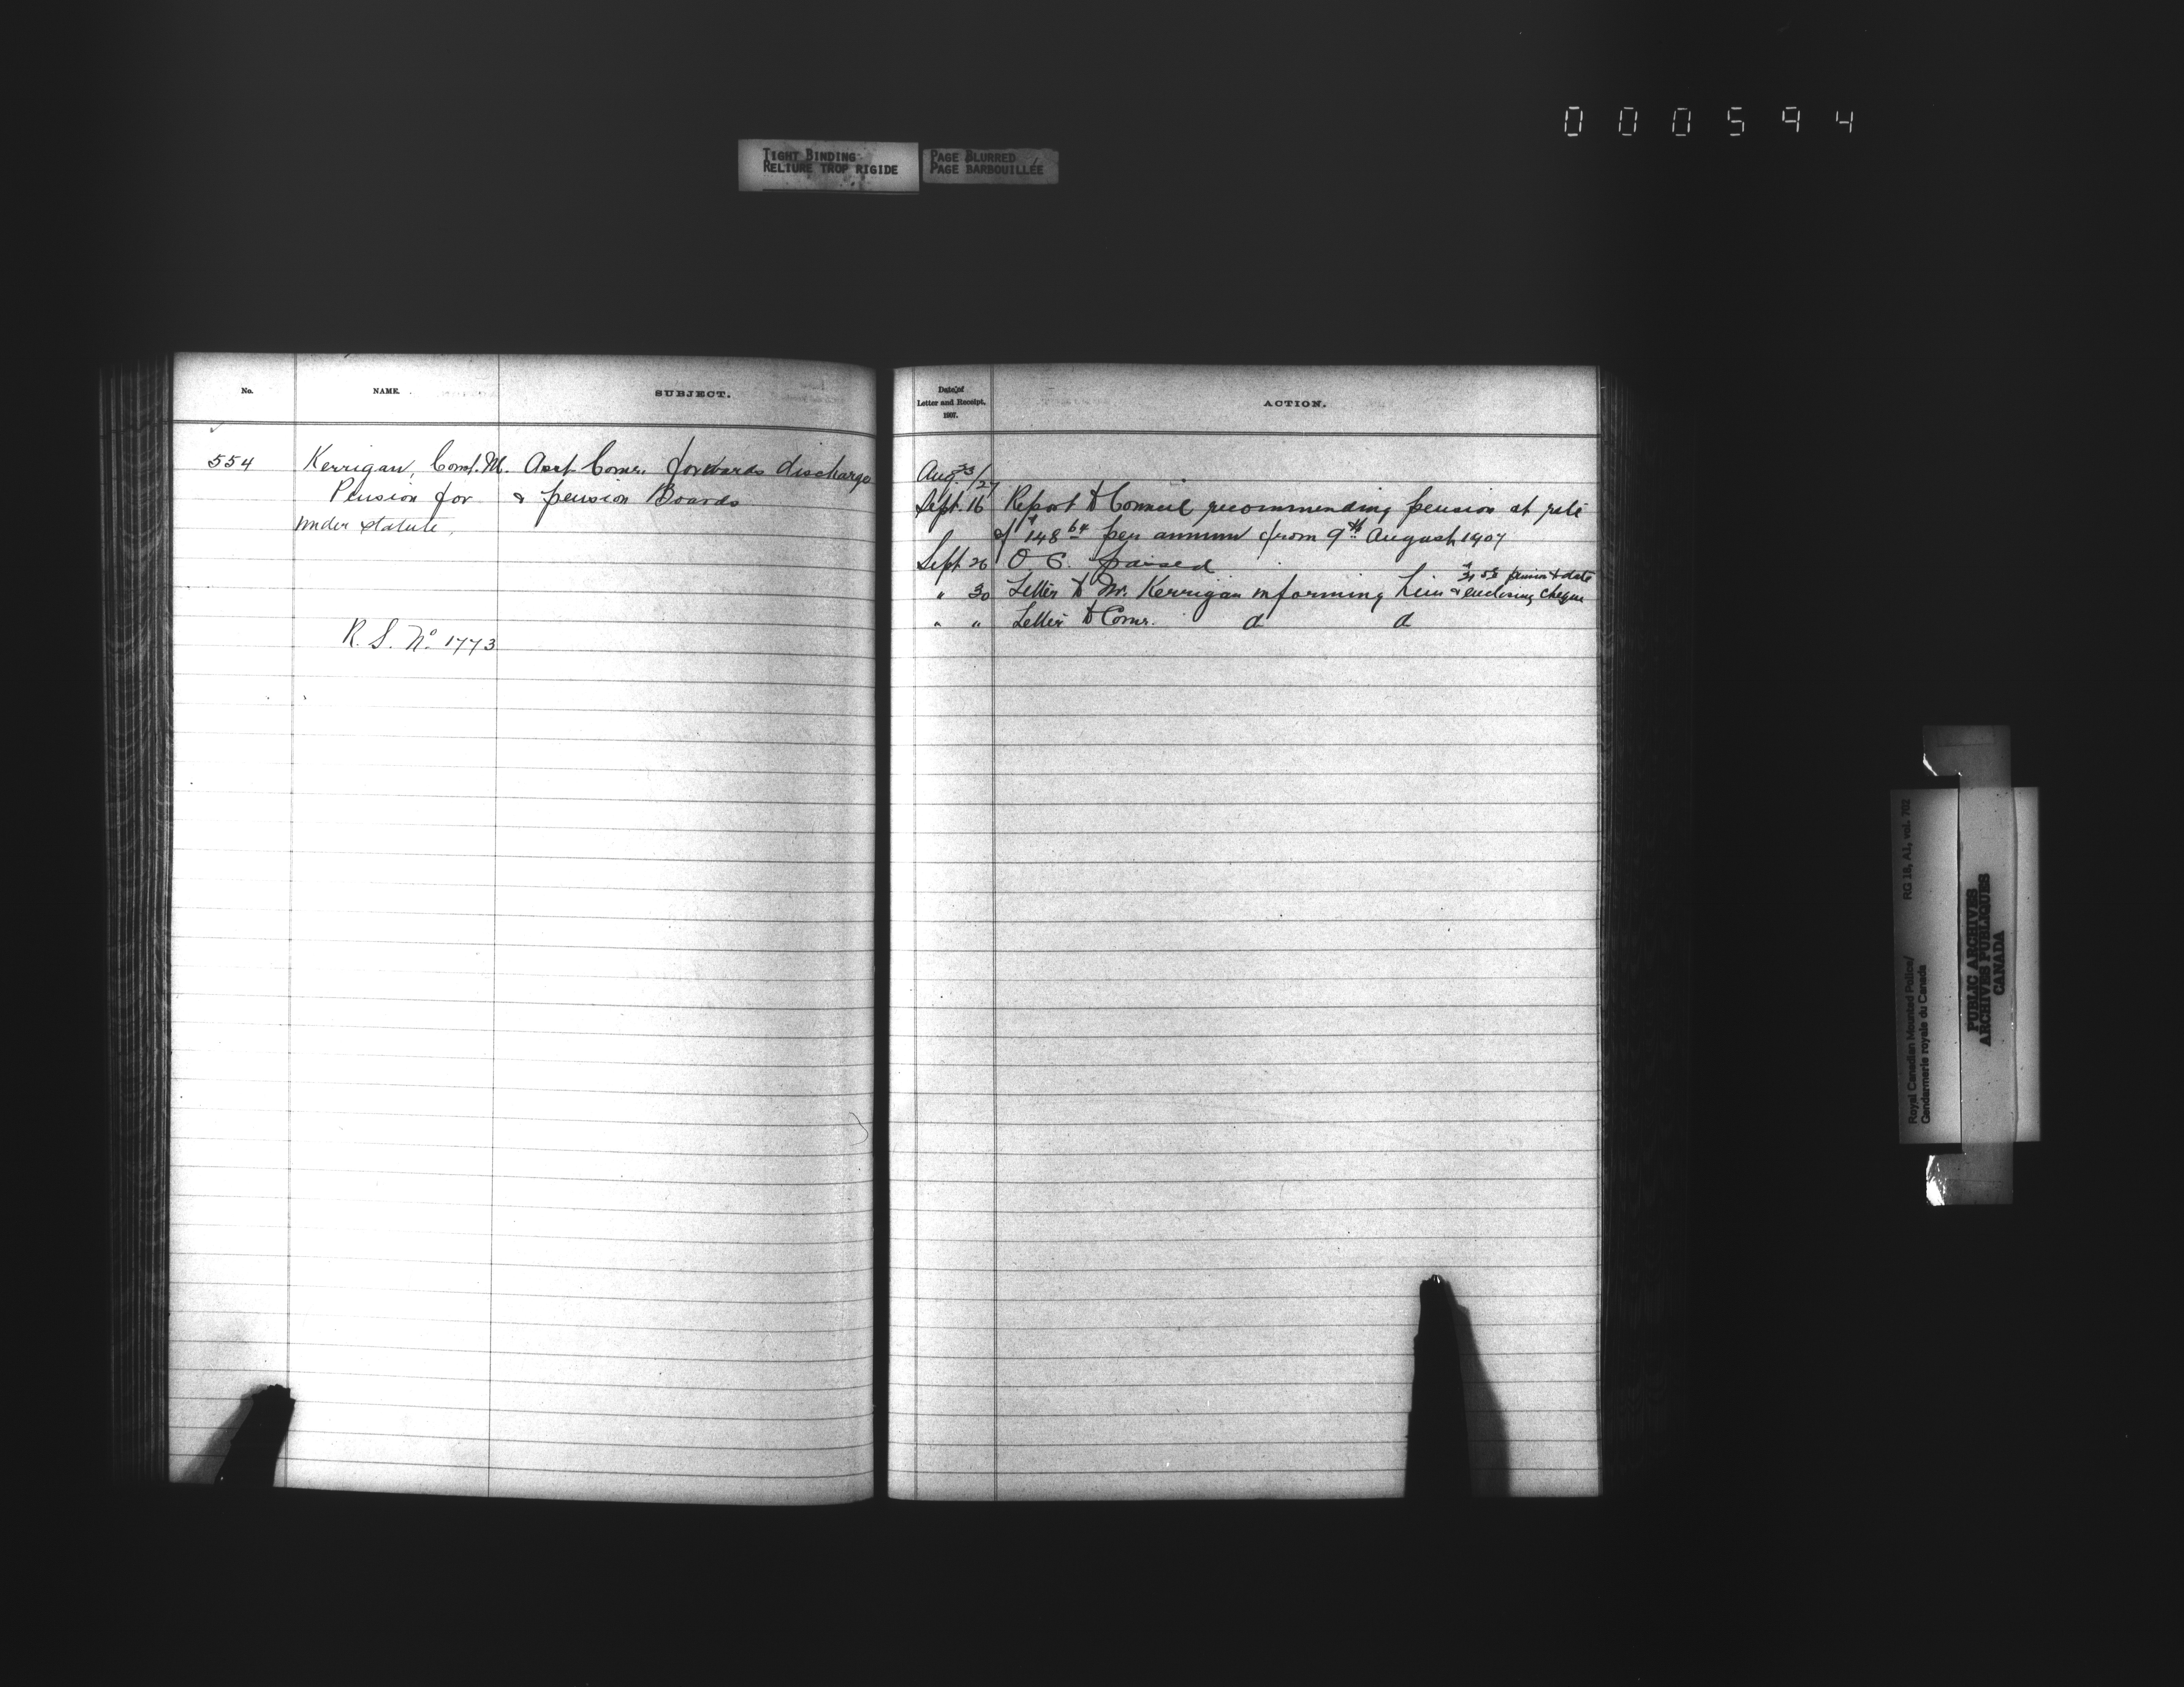 000594
TIGHT BINDING
RELIURE TROP RIGIDE
PAGE BLURRED
PAGE BARBOUILLÉE
No.
NAME.
SUBJECT.
554
Kerrigan, Const. M.
Pension for
under statute.
R. S. No. 1773
Asst Comr. forwards discharge
& pension Boards
Date of
Letter and Receipt,
1907.
ACTION.
Aug. 23/27
Sept. 16 Report to Council recommending pension at rate
of $148 64 per annum from 9th August 1907
Sept 26 O C. passed
" 30 Letter to Mr. Kerrigan informing him & enclosing cheque
pension to date
" " Letter to Comr. do do
Royal Canadian Mounted Police/
Gendarmerie royale du Canada
RG 18, A1, vol. 702
PUBLIC ARCHIVES
ARCHIVES PUBLIQUES
CANADA